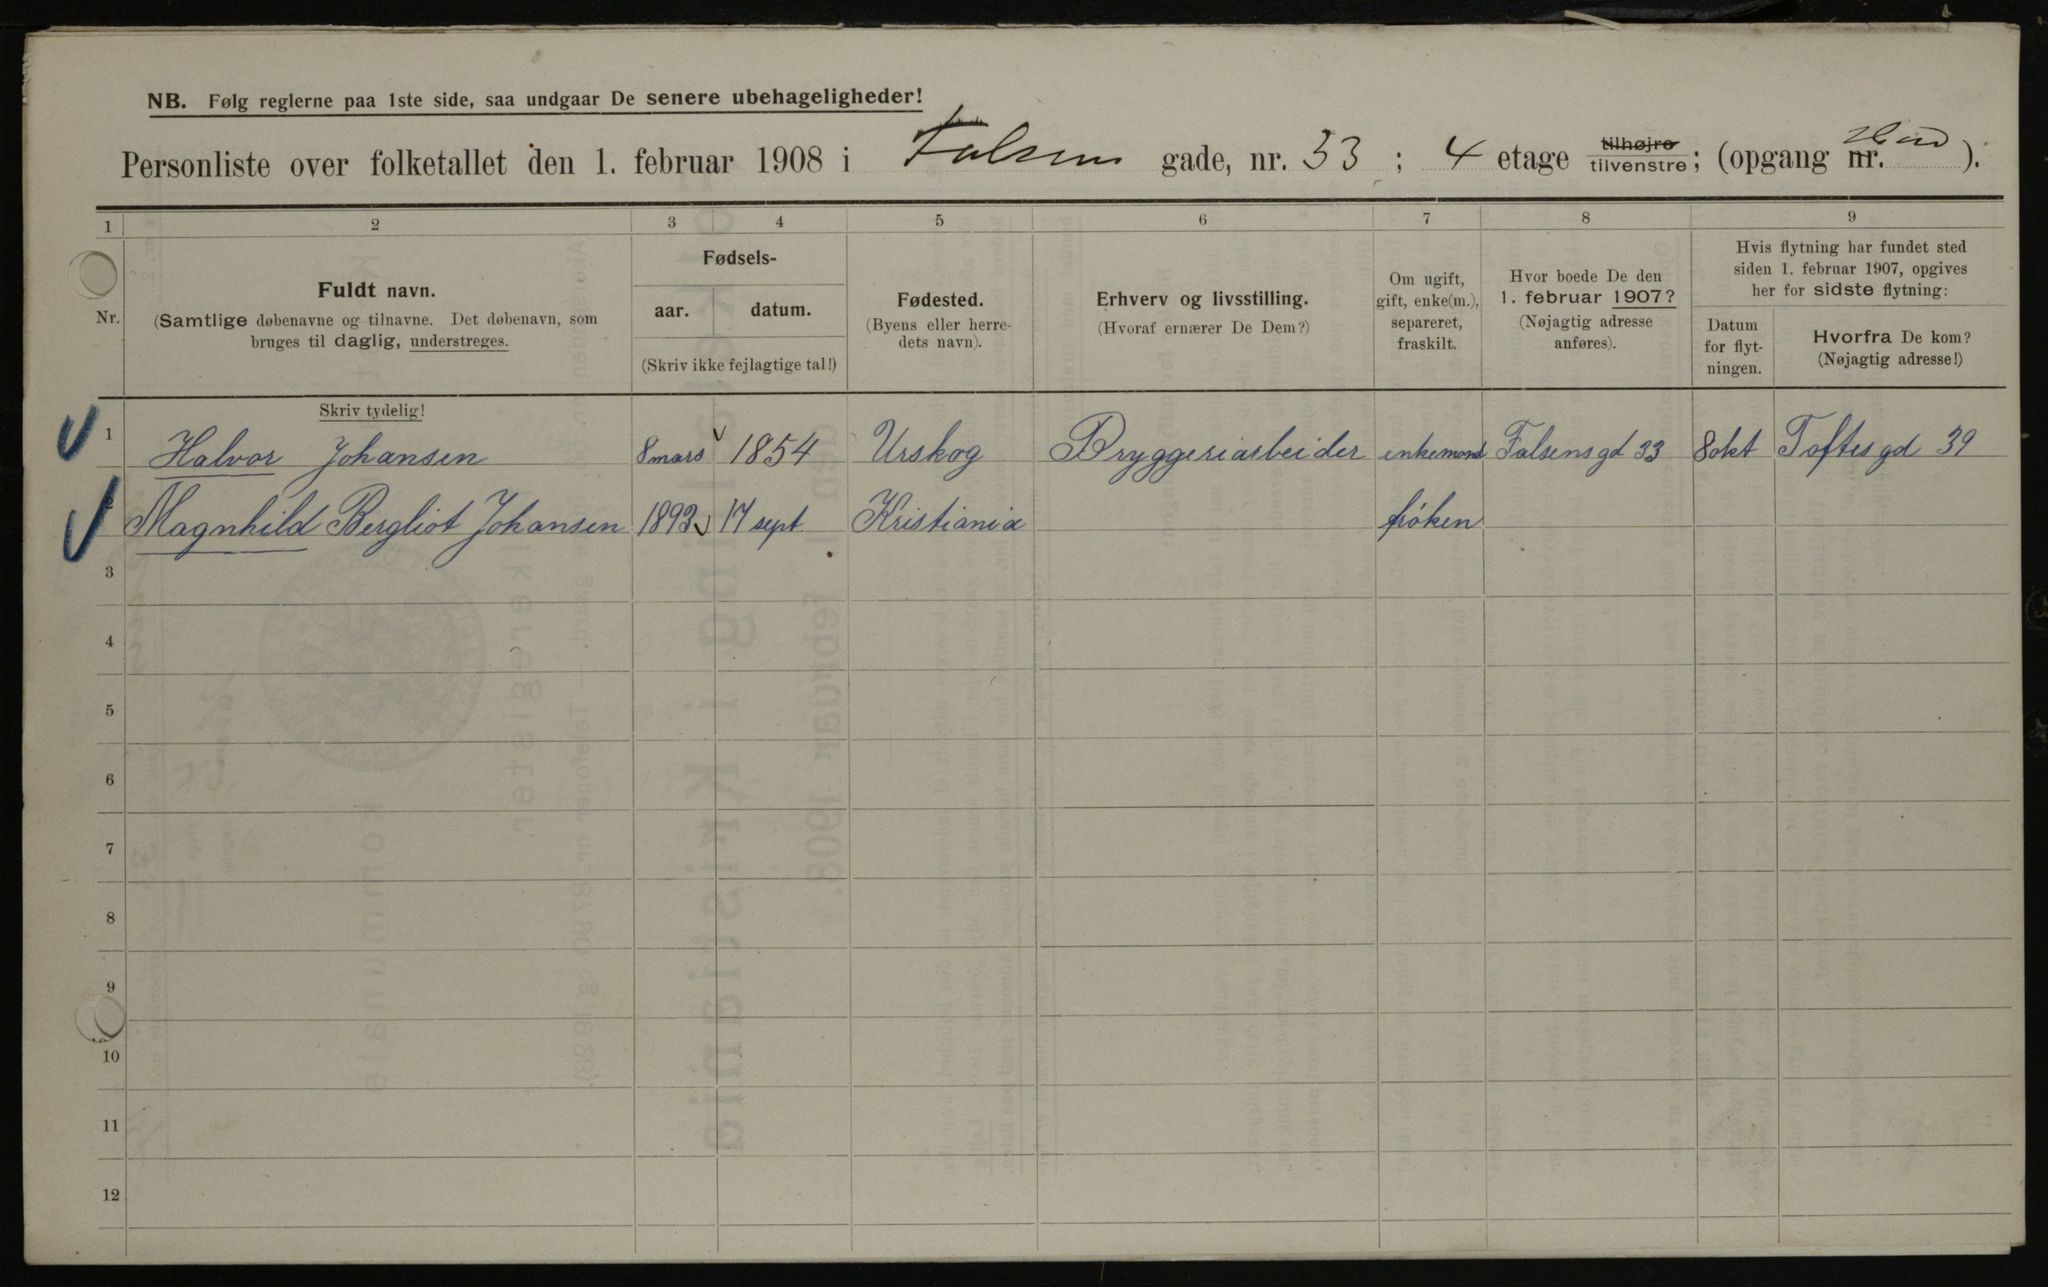 NB. Følg reglerne paa 1ste side, saa undgaar De senere ubehageligheder!
Personliste over folketallet den 1. februar 1908 i Falsens gade, nr. 33 ; 4 etage tilhøjre tilvenstre; (opgang nr. ).
1 2 3 4 5 6 7 8 9
Nr.
Fuldt navn.
(Samtlige døbenavne og tilnavne. Det døbenavn, som
bruges til daglig, understreges.
Skriv tydelig!
Fødsels-
aar. datum.
(Skriv ikke fejlagtige tal!)
Fødested.
(Byens eller herre-
dets navn).
Erhverv og livsstilling.
(Hvoraf ernærer De Dem?)
Om ugift,
gift, enke(m.),
separeret,
fraskilt.
Hvor boede De den
1. februar 1907?
(Nøjagtig adresse
anføres).
Hvis flytning har fundet sted
siden 1. februar 1907, opgives
her for sidste flytning:
Datum
for flyt-
ningen.
Hvorfra De kom?
(Nøjagtig adresse!)
1 Halvor Johansen 8 mars 1854 Urskog Bryggeriarbeider enkemand Falsensgd 33 8 okt Toftesgd 39
Magnhild Bergliot Johansen 1893 17 sept Kristiania frøken
3
4
5
6
7
8
9
10
11
12